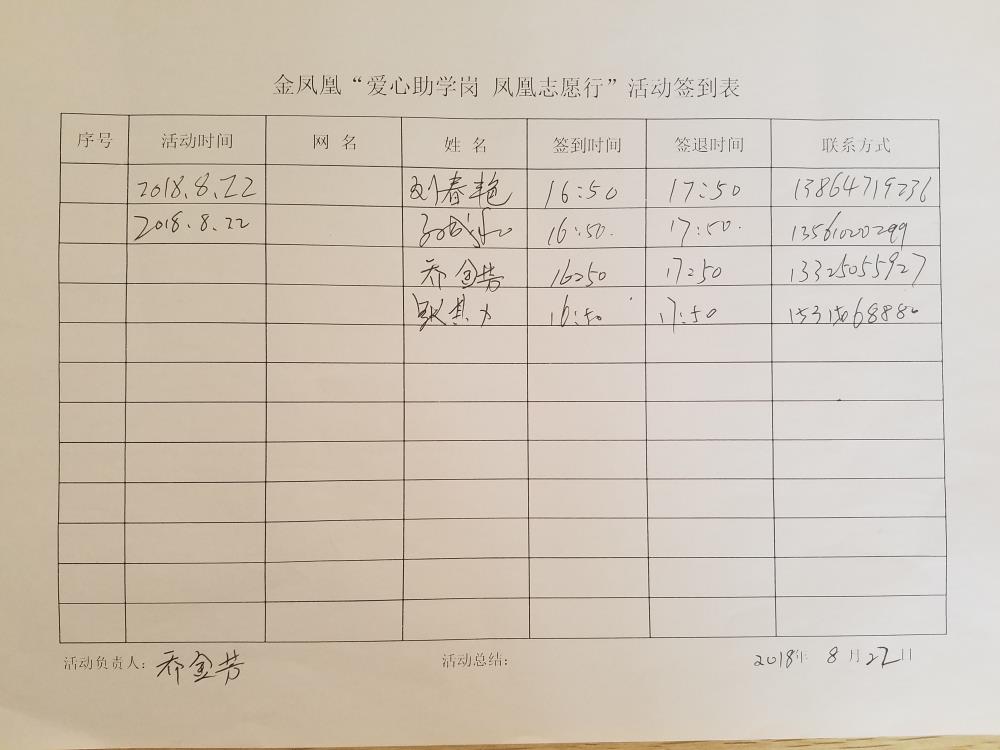 金凤凰“爱心助学岗 凤凰志愿行”活动签到表
序号 活动时间 网 名 姓 名 签到时间 签退时间 联系方式
2018.8.22 刘春艳 16:50 17:50 13864719236
2018.8.22 16:50. 17:50. 13561020299
乔金芳 16:50 17:50 13325055927
16:50 17:50
活动负责人: 乔金芳 活动总结: 2018年 8月22日